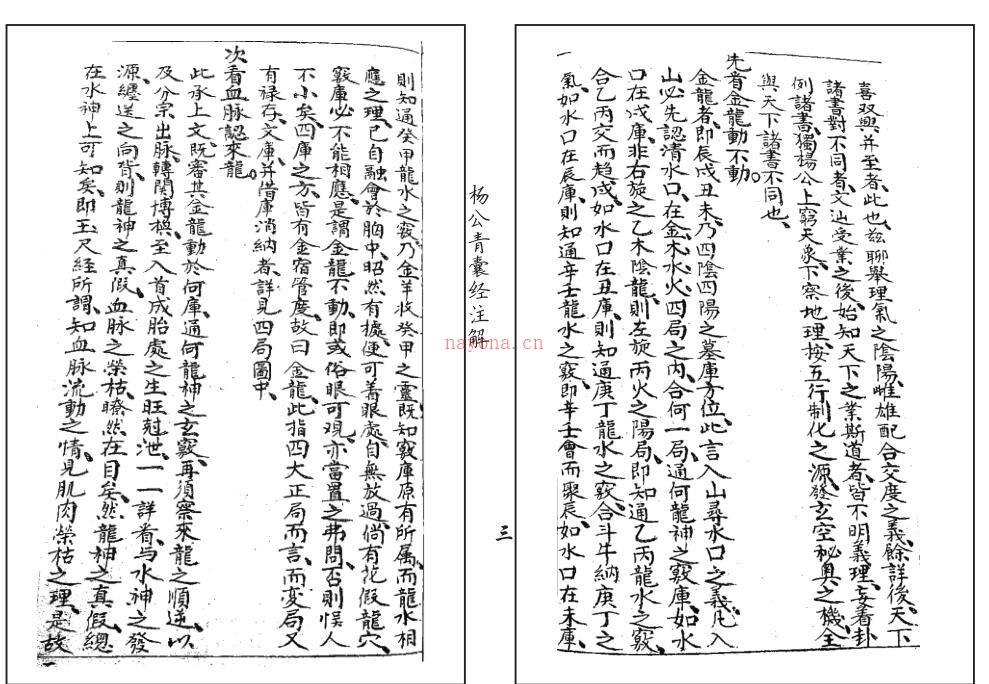 喜双與并至者、此也、茲聊舉理氣之陰陽、雌雄配合交度之義、餘詳後、天下
諸書對不同者、文辿受業之後、始知天下之業斯道者、皆不明義理、妄著卦
例諸書、獨楊公上窮天象、下察地理、按五行制化之源、發玄空秘奧之機、全
與天下諸書不同也、
先看金龍動不動。
金龍者、即辰戌丑未、乃四陰四陽之墓庫方位、此言入山尋水口之義、凡入
山必先認清水口、在金木水火四局之内、合何一局、通何龍神之竅庫、如水
口在戌庫、非右旋之乙木陰龍、則左旋丙火之陽局、即知通乙丙龍水之竅、
合乙丙交而趋戌、如水口在丑庫、則知通庚丁龍水之竅、合斗牛納庚丁之
氣、如水口在辰庫、則知通辛壬龍水之竅、即辛壬會而聚辰、如水口在未庫、
杨公青囊经注解
三
則知通癸甲龍水之竅、乃金羊收癸甲之靈、既知竅庫原有所属、而龍水相
應之理、已自融會於胸中、昭然有據、便可着眼處、自無放過、倘有花假龍穴、
竅庫必不能相應、是謂金龍不動、即或俗眼可观、亦當置之弗問、否則悞人
不小矣、四庫之方、皆有金宿管度、故曰金龍、此指四大正局而言、而变局又
有禄存、文庫并借庫消納者、詳見四局圖中、
次看血脉認來龍。
此承上文、既審其金龍動於何庫、通何龍神之玄竅、再須察來龍之順逆、以
及分宗出脉、轉関博换、至入首成胎處之生旺尅泄、一一詳看、与水神之發
源、纏送之向背、則龍神之真假、血脉之榮枯、瞭然在目矣、然龍神之真假、總
在水神上可知矣、即玉尺経所謂、知血脉流動之情、見肌肉榮枯之理、是故
nayona.cn